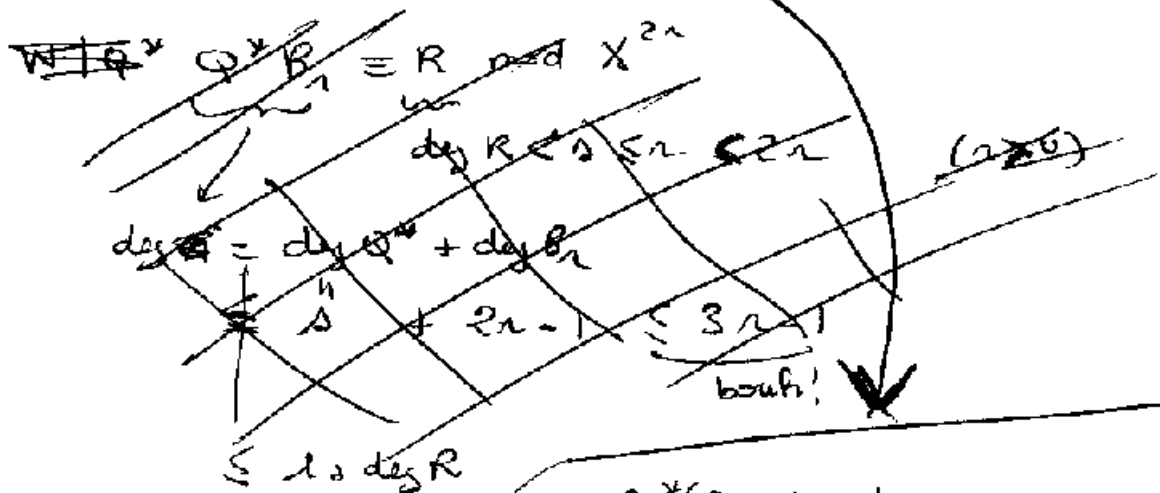 W | Q* Q* B_r ≡ R mod X^{2r}
deg R < s ≤ r ≤ 2r (r>0)
deg = deg Q* + deg B_r
s + 2r - 1 ≤ 3r - 1
bouh!
≤ deg R